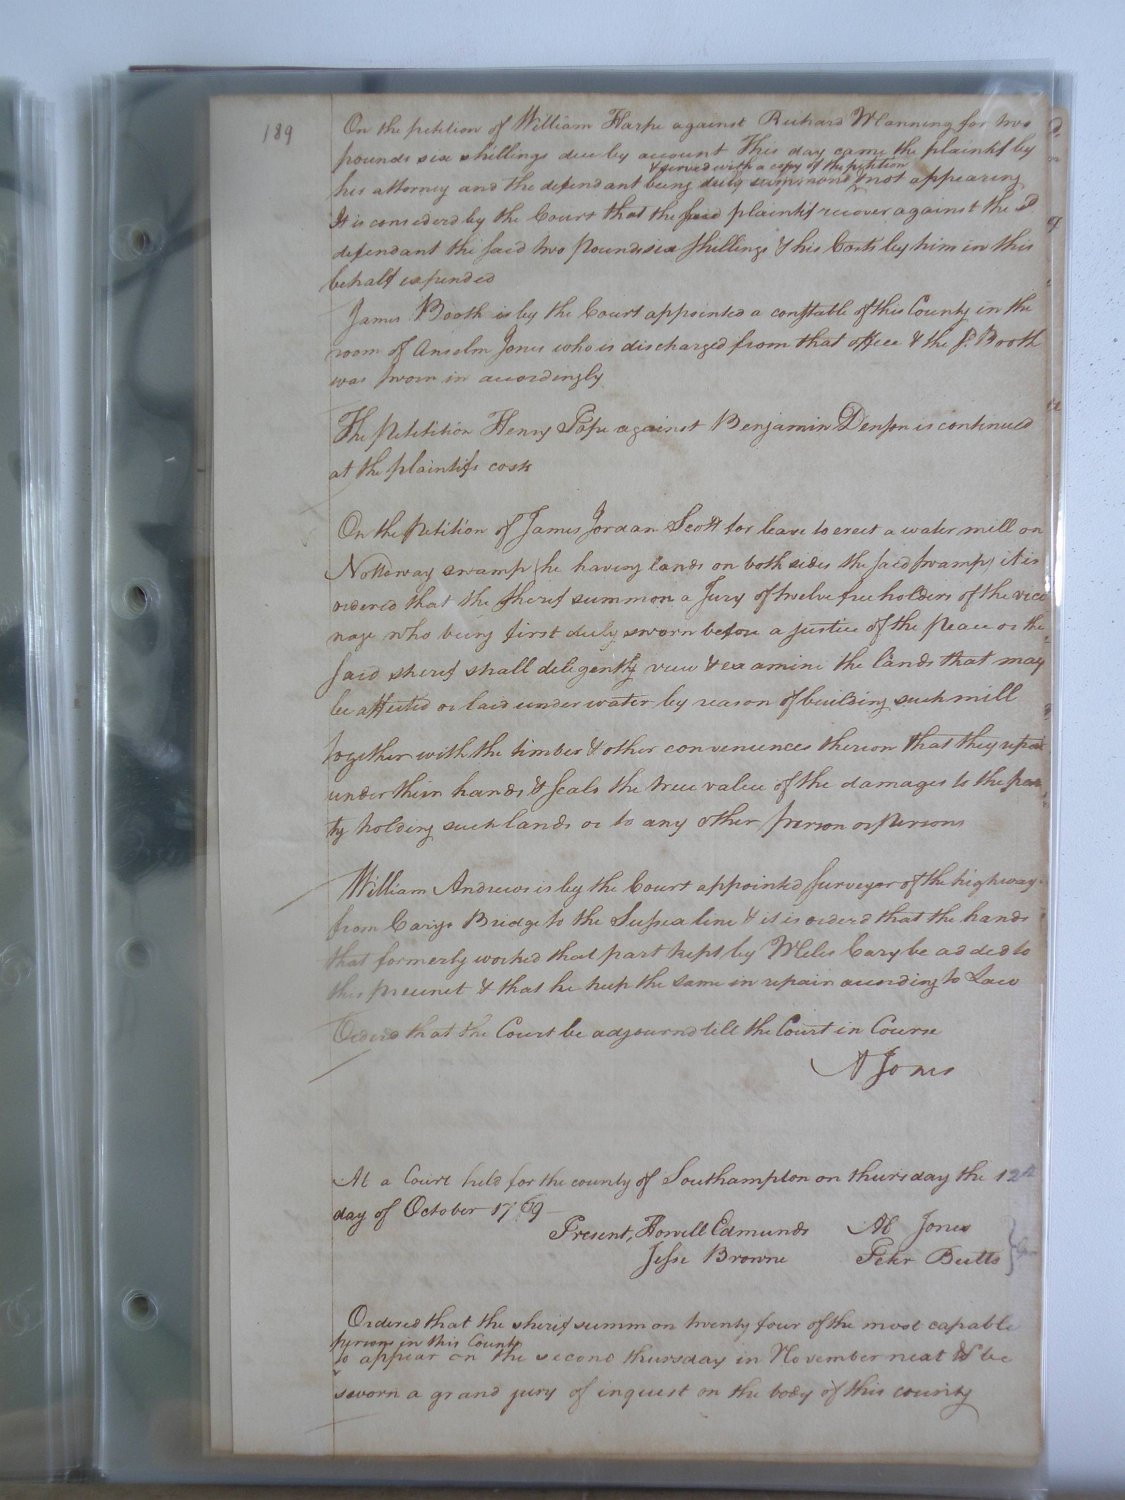 189
On the petition of William Harpe against Richard Manning for two
pounds six shillings due by account This day came the plaintif by
& served with a copy of the petition
his attorney and the defendant being duly summond & not appearing
It is considerd by the Court that the said plaintif recover against the sd
defendant the said two pounds six shillings & his Costs by him in this
behalf expended
James Booth is by the Court appointed a constable of this County in the
room of Anselm Jones who is discharged from that office & the sd. Booth
was sworn in accordingly
The petitition Henry Pope against Benjamin Denson is continued
at the plaintifs costs
On the petition of James Jordan Scott for leave to erect a water mill on
Nottoway swamp (he having lands on both sides the said swamp) it is
ordered that the sherif summon a Jury of twelve freeholders of the vici
nage who being first duly sworn before a justice of the peace or the
said sherif shall deligently view & examine the lands that may
be affected or laid under water by reason of building such mill
together with the timber & other conveniences thereon that they report
under their hands & seals the true value of the damages to the par
ty holding such lands or to any other person or persons
William Andrews is by the Court appointed surveyor of the highway
from Carys Bridge to the Sussex line & it is orderd that the hands
that formerly worked that part kept by Miles Cary be added to
this precinct & that he keep the same in repair according to Law
Orderd that the Court be adjournd till the Court in Course
A Jones
At a Court held for the county of Southampton on thursday the 12th
day of October 1769
Present, Howell Edmunds Al Jones
Jesse Browne Peter Butts
Ordered that the sherif summon twenty four of the most capable
persons in this County
to appear on the second thursday in November next to be
sworn a grand jury of inquest on the body of this county